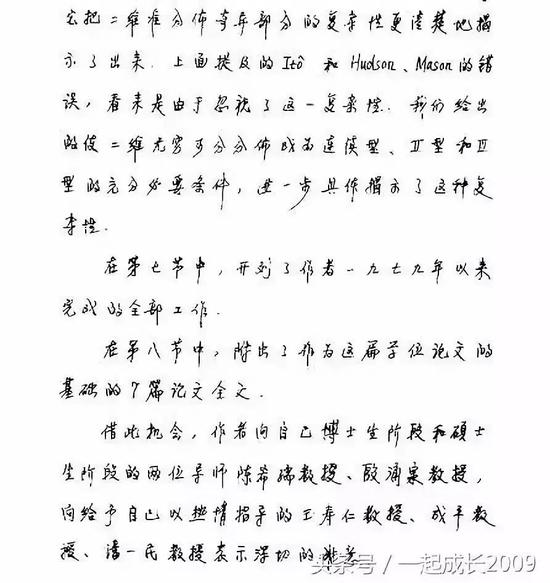 它把二维准分佈奇异部分的复杂性更清楚地揭
示了出来. 上面提及的Itô 和 Hudson、Mason的错
误, 看来是由于忽视了这一复杂性. 我们给出
的使二维无穷可分分佈成为连续型、II型和III
型的充分必要条件, 进一步具体揭示了这种复
杂性.
在第七节中, 开列了作者一九七九年以来
完成的全部工作.
在第八节中, 附出了作为这篇学位论文的
基础的7篇论文全文.
借此机会, 作者向自己博士生阶段和硕士
生阶段的两位导师陈希孺教授、殷涌泉教授,
向给予自己以热情指导的王寿仁教授、成平教
授、潘一民教授表示深切的
头条号 / 一起成长2009